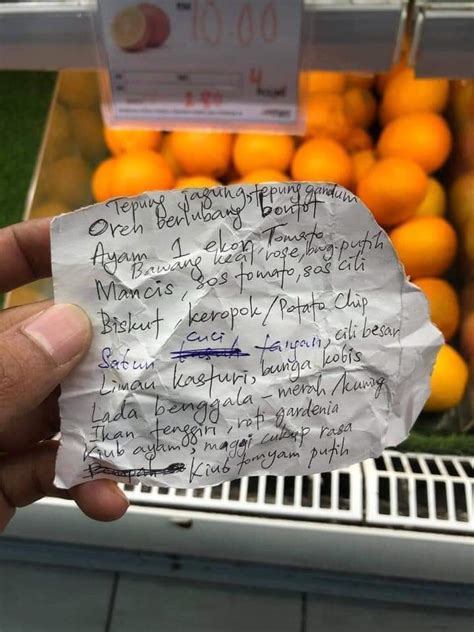 RM 10.00
4
2.80
Tepung jagung, tepung gandum
Oren berlubang bontot
Ayam 1 ekor, Tomato
Bawang kecil, rose, bwg. putih
Mancis, sos tomato, sos cili
Biskut keropok/Potato Chip
cuci
Sabun tangan, cili besar
Limau kasturi, bunga kobis
Lada benggala - merah/kuning
Ikan tenggiri, roti gardenia
Kiub ayam, maggi cukup rasa
Kiub tomyam putih